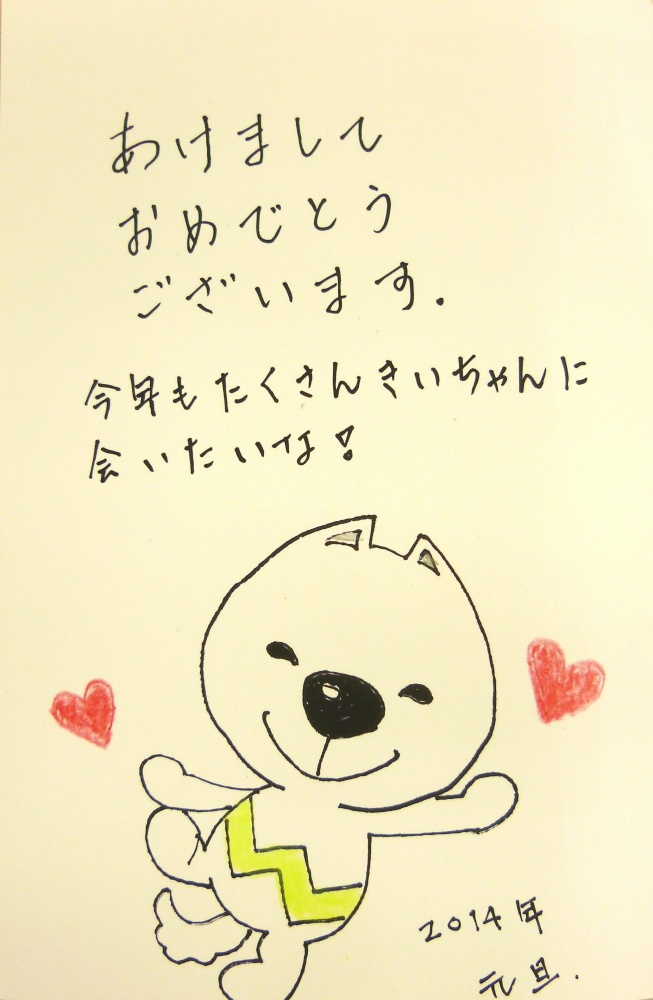 あけまして
おめでとう
ございます.
今年もたくさんきいちゃんに
会いたいな!
2014年
元旦.